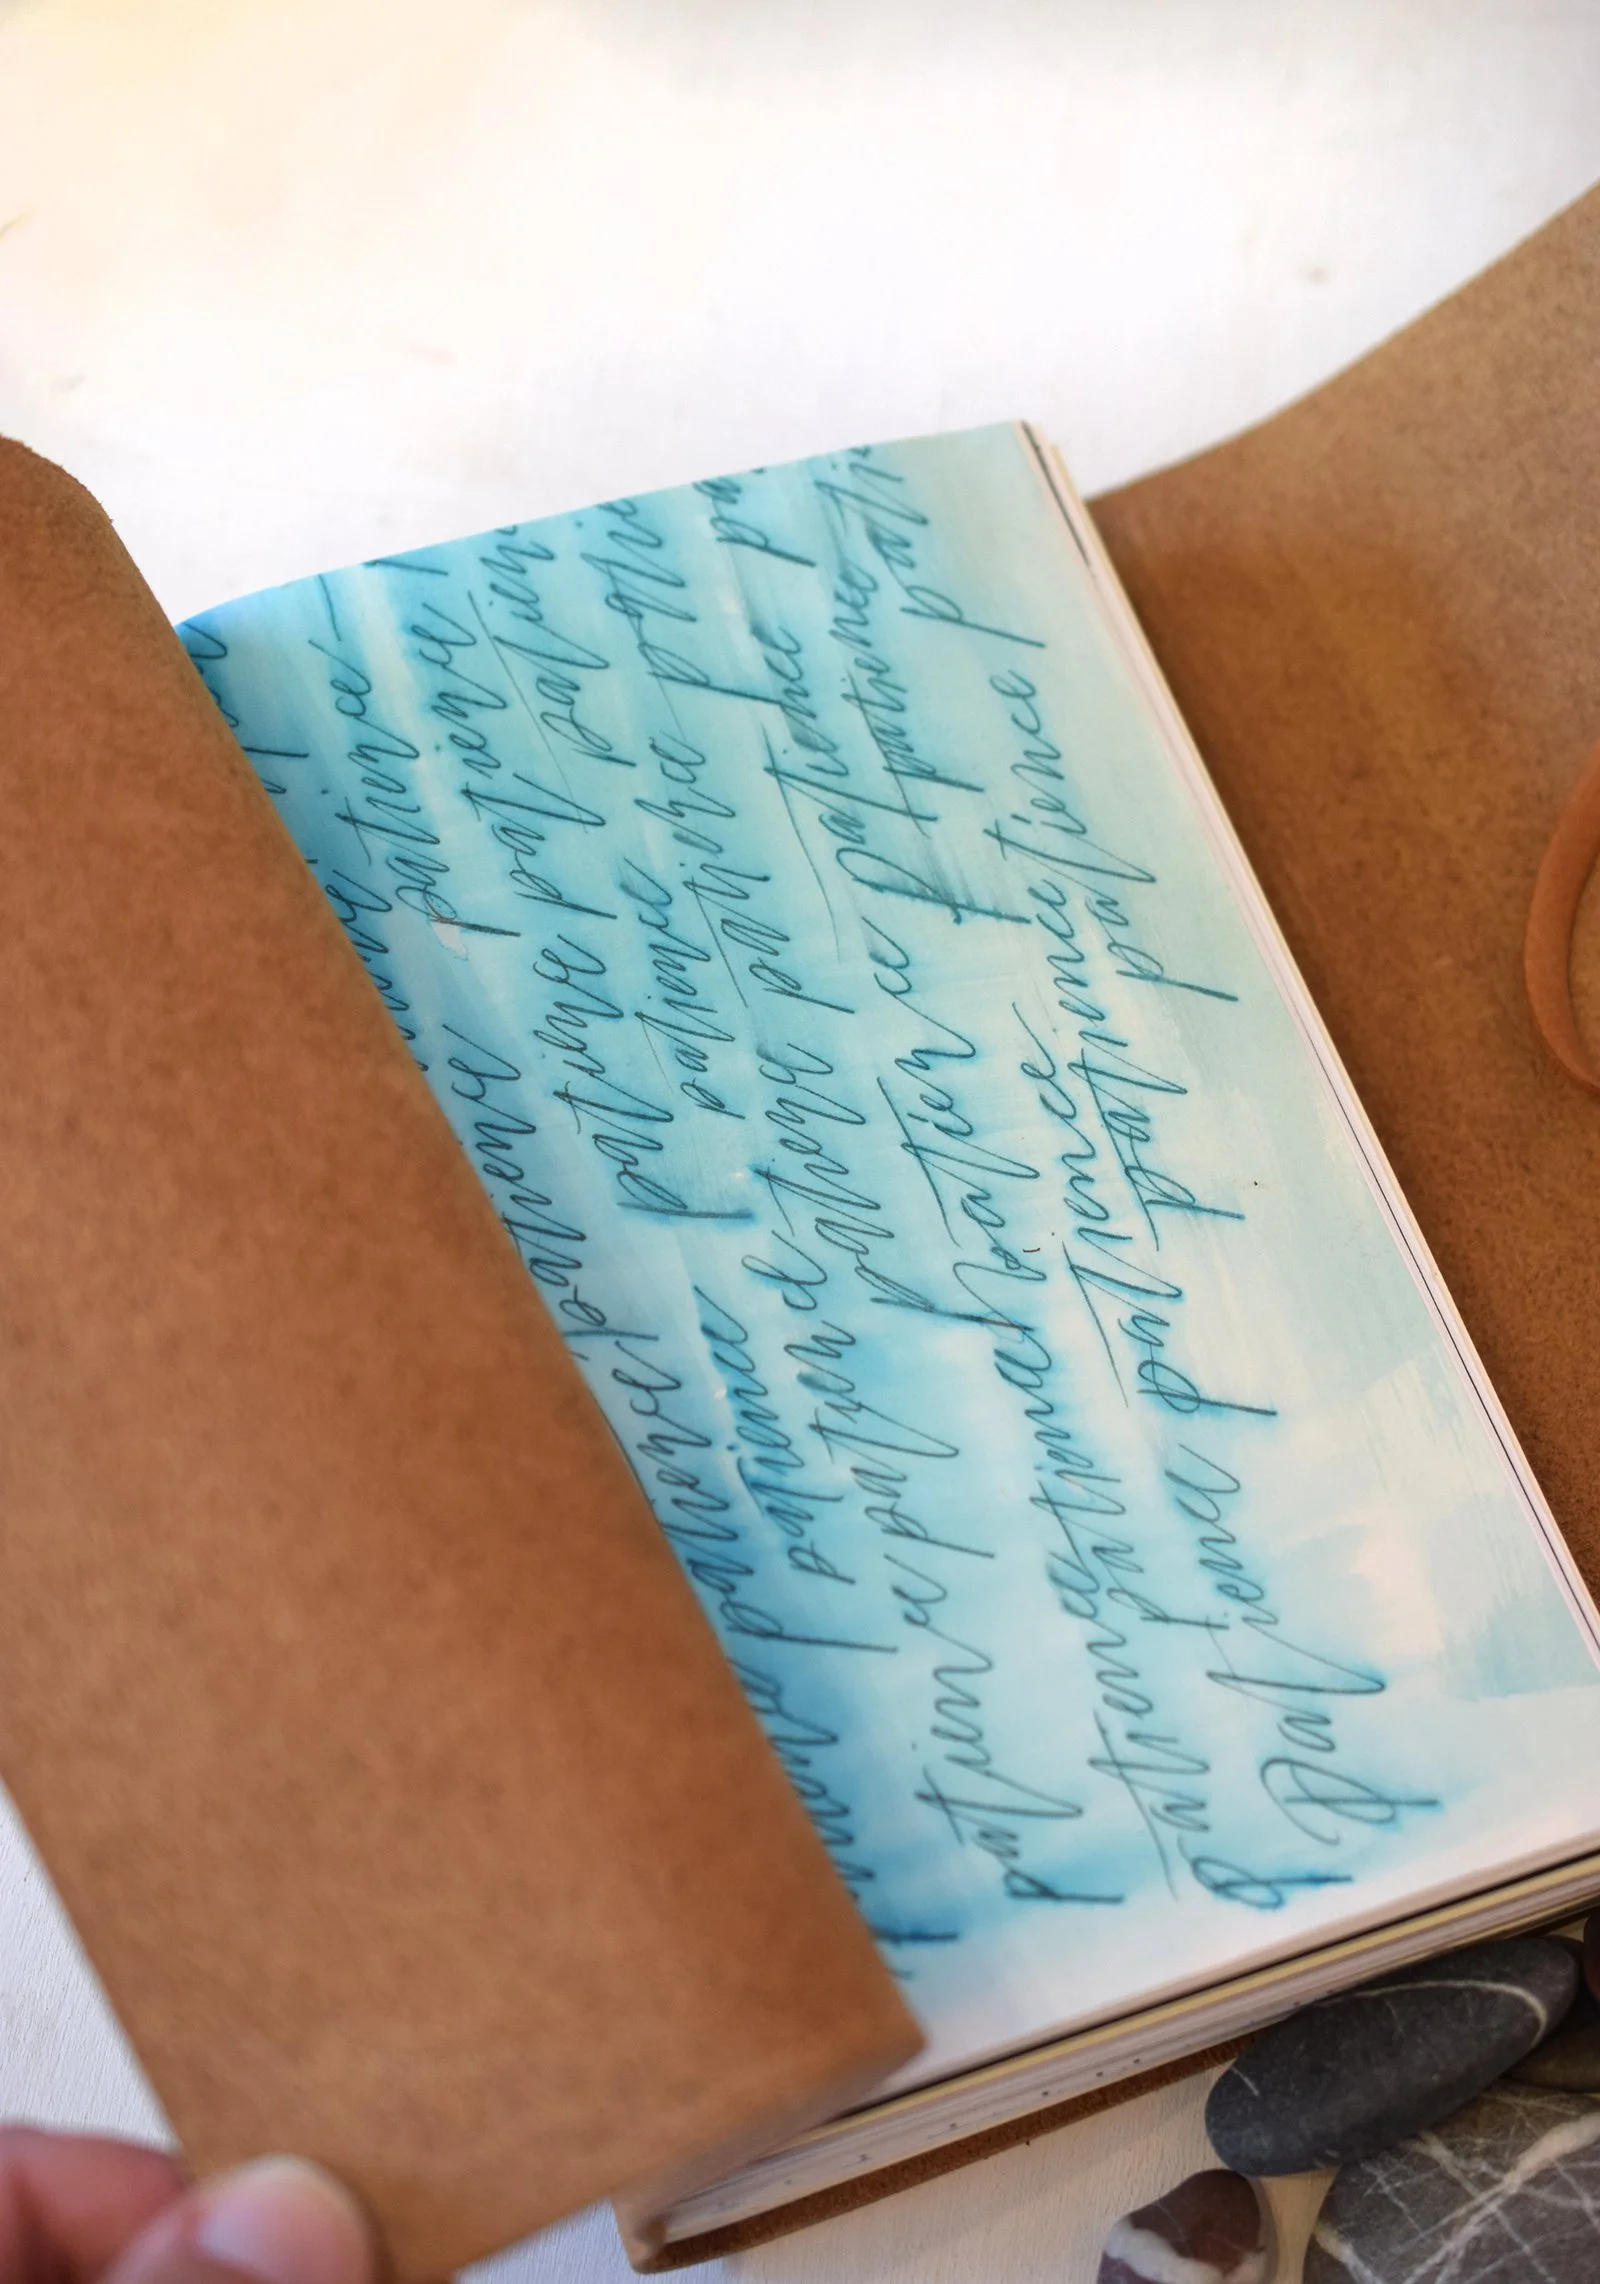 pati
patience patience
patience patience
patience patience patience
patience patience patience patie
patience patience patience patie
patience patience patience patience pa
patience patience patience patience
patience patience patience patience patience
Patience patience patience patience pati